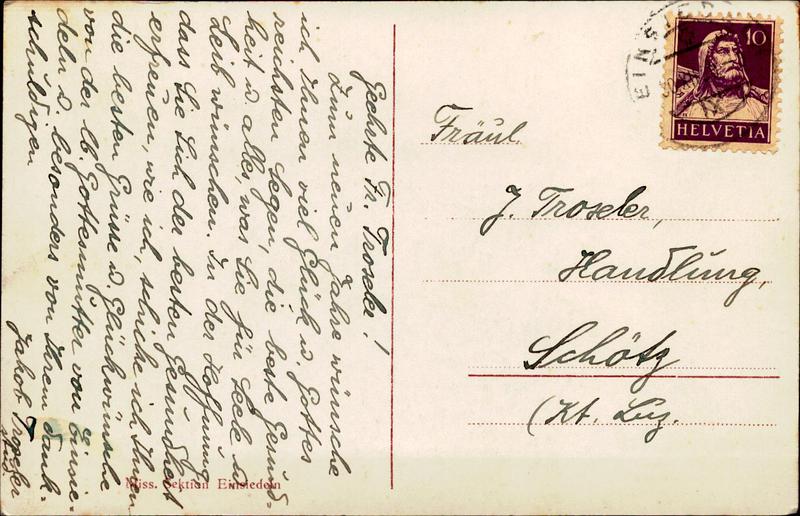 Geehrte Fr. Troxler!
Zum neuen Jahre wünsche
ich Ihnen viel Glück u. Gottes
reichsten Segen, die beste Gesund-
heit u. alles, was Sie für Seele u.
Leib wünschen. In der Hoffnung
dass Sie sich der besten Gesundheit
erfreuen, wie ich, schicke ich Ihnen
die besten Grüsse u. Glückwünsche
von der lb. Gottesmutter von Einsie-
deln u. besonders von Ihrem dank-
schuldigen
Jakob
stud.
Miss. Sektion Einsiedeln
EINSIED
10
HELVETIA
Fräul.
J. Troxler,
Handlung,
Schötz
(Kt. Luz.